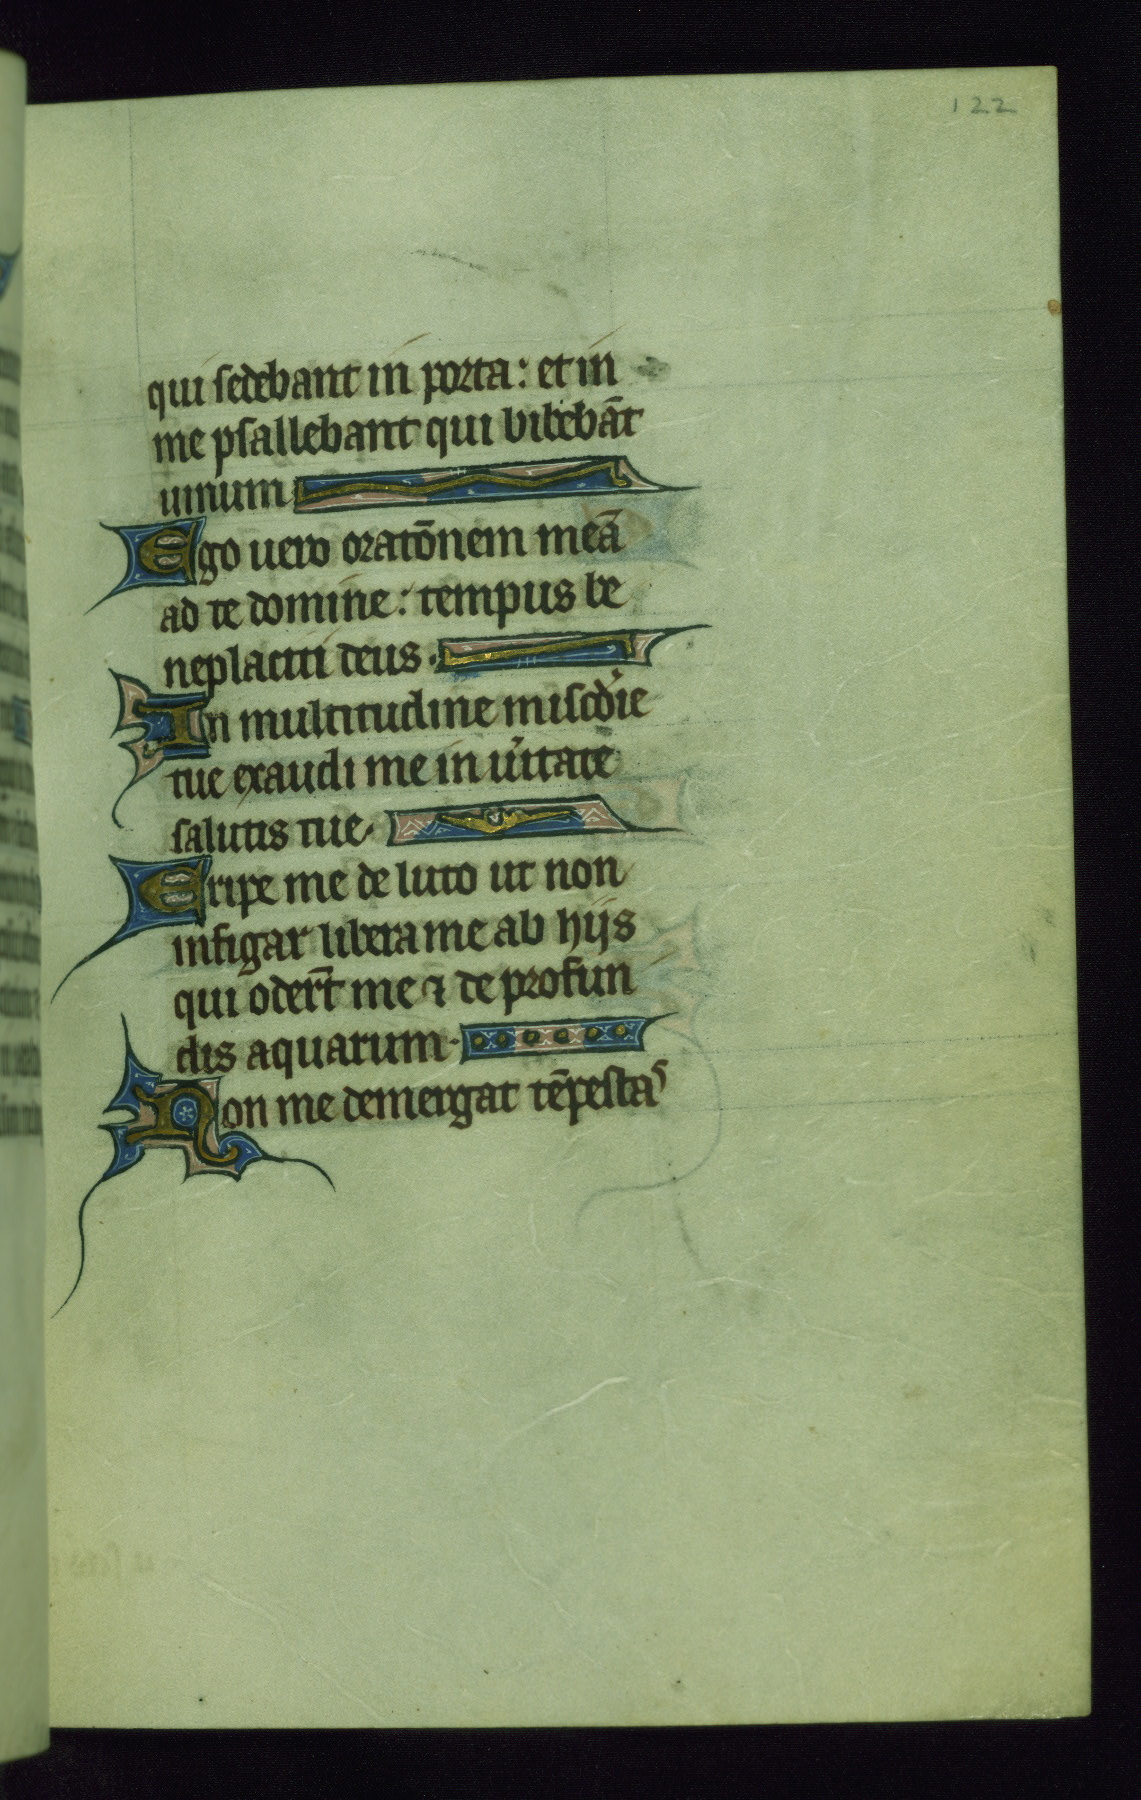 122
qui sedebant in porta: et in
me psallebant qui bibebāt
uinum
Ego uero oratōnem meā
ad te domine: tempus be
neplaciti deus.
In multitudine misc̄die
tue exaudi me in ūitate
salutis tue.
Eripe me de luto ut non
infigar libera me ab hijs
qui oder̄t me ⁊ de profun
dis aquarum.
Non me demergat tēpestas